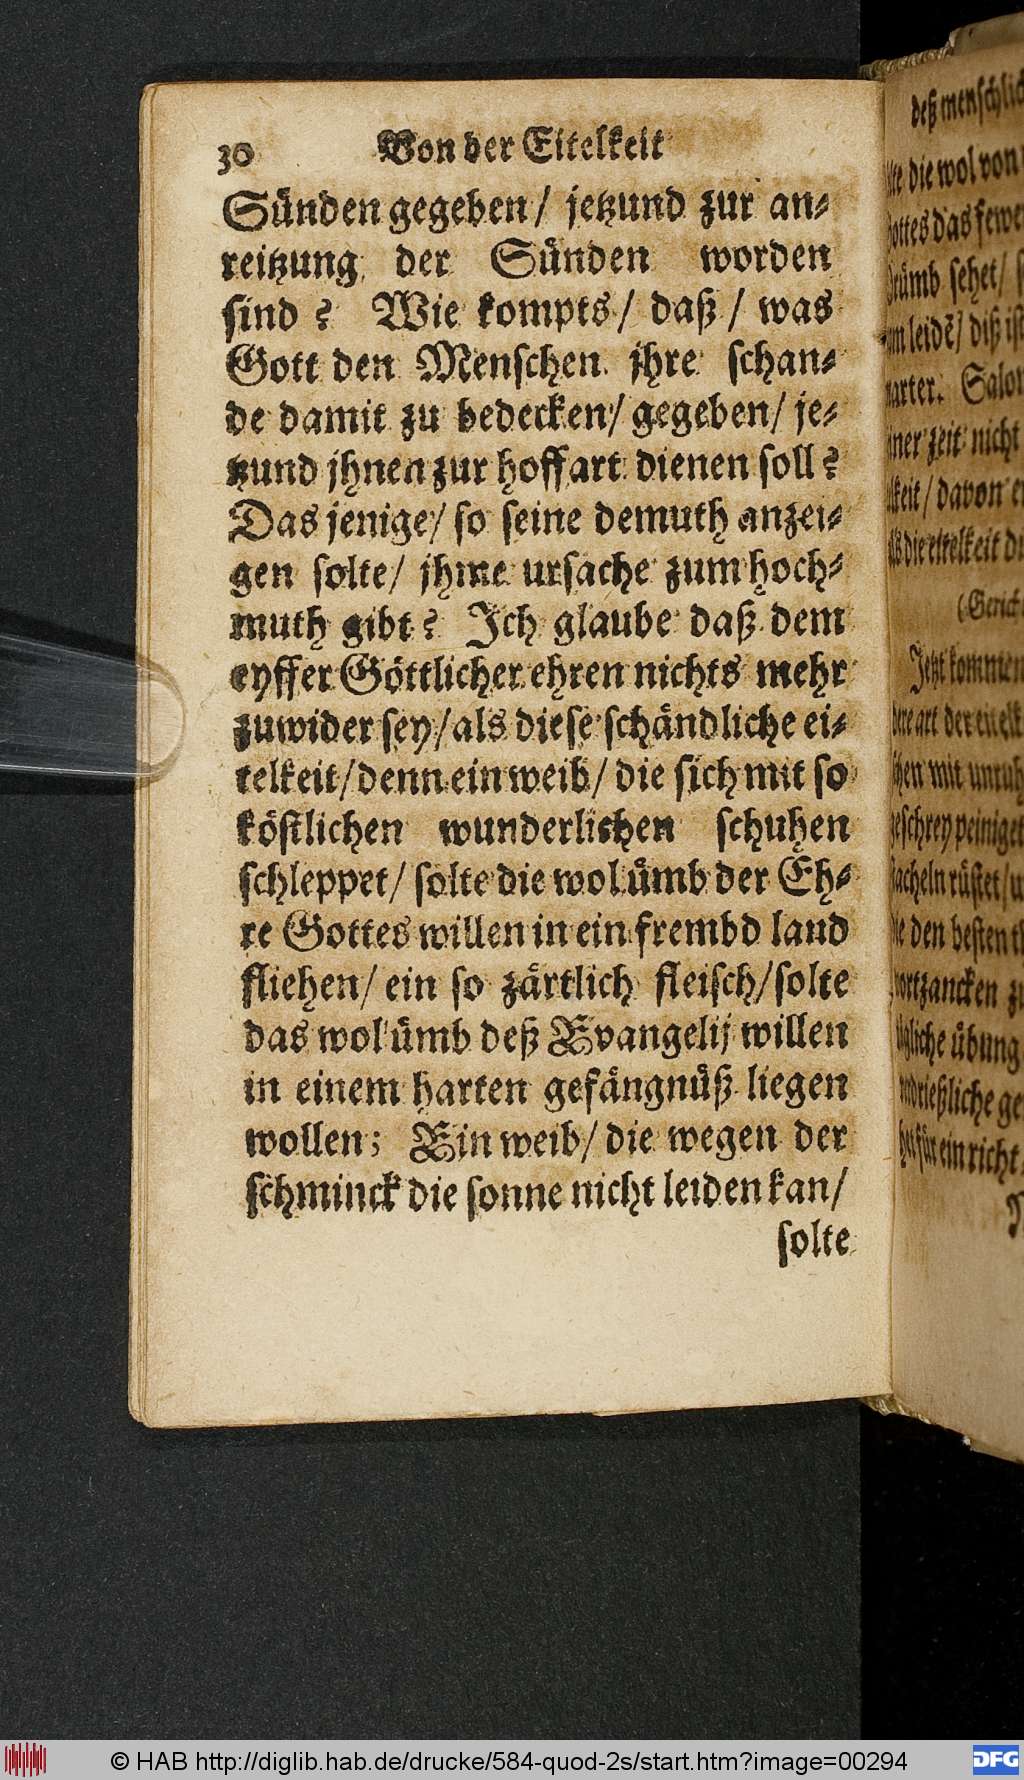 30 Von der Eitelkeit
Sünden gegeben / jetzund zur an⸗
reitzung der Sünden worden
sind? Wie kompts / daß / was
Gott den Menschen jhre schan⸗
de damit zu bedecken / gegeben / je⸗
tzund jhnen zur hoffart dienen soll?
Das jenige / so seine demuth anzei⸗
gen solte / jhme ursache zum hoch⸗
muth gibt? Ich glaube daß dem
eyffer Göttlicher ehren nichts mehr
zuwider sey / als diese schändliche ei⸗
telkeit / denn ein weib / die sich mit so
köstlichen wunderlichen schuhen
schleppet / solte die wol ümb der Eh⸗
re Gottes willen in ein frembd land
fliehen / ein so zärtlich fleisch / solte
das wol ümb deß Evangelij willen
in einem harten gefängnüß liegen
wollen; Ein weib / die wegen der
schminck die sonne nicht leiden kan /
solte
deß menschlich
die wol von
das fewe
sehet /
leidẽ / diß ist
Salo
zeit nicht
davon e
die eitelkeit d
(Gerich
Jetzt kommen
art der
mit unruh
geschrey peiniget
rüstet / u
den besten th
wortzancken z
übung
ge
für ein richt
© HAB http://diglib.hab.de/drucke/584-quod-2s/start.htm?image=00294
DFG